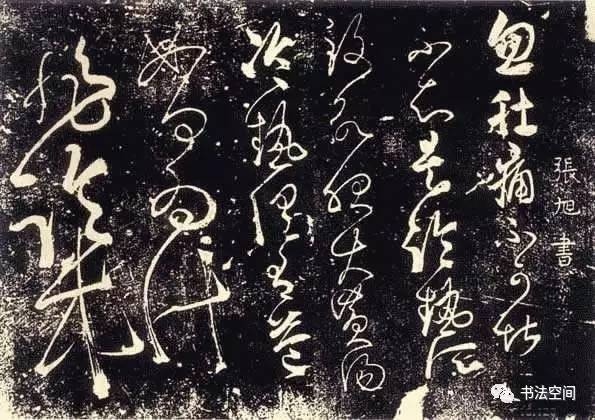 張旭書
忽肚痛不可堪
不知是冷熱所
致欲服大黃湯
冷熱俱有益
如何為計
非
书法空间